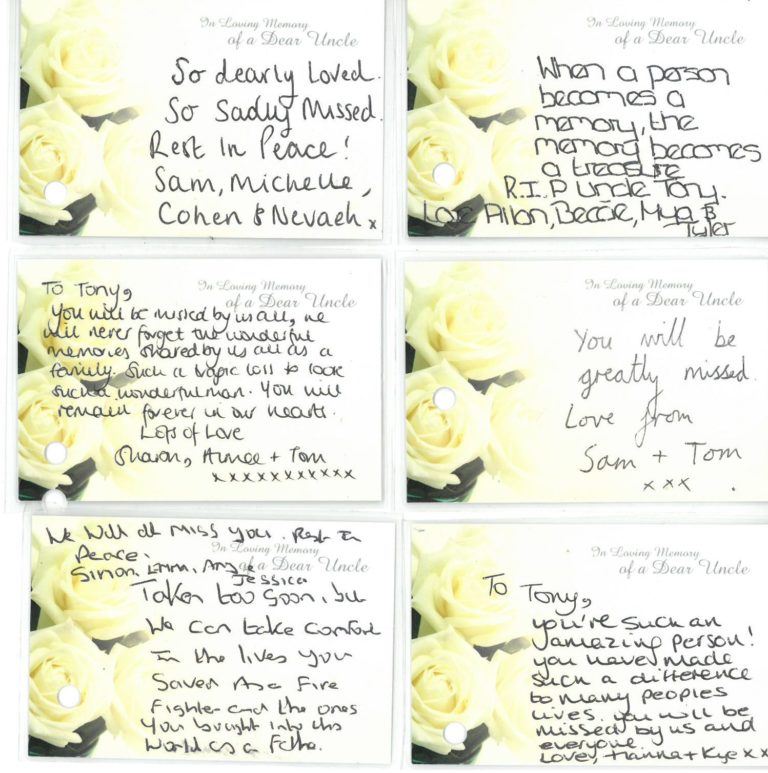 In Loving Memory
of a Dear Uncle
So dearly Loved.
So Sadly Missed.
Rest In Peace!
Sam, Michelle,
Cohen & Nevaeh x
In Loving Memory
of a Dear Uncle
When a person
becomes a
memory, the
memory becomes
a treasure
R.I.P Uncle Tony.
Love Beccie, Mya &
Tyler
In Loving Memory
of a Dear Uncle
To Tony,
You will be missed by us all, we
will never forget the wonderful
memories shared by us all as a
family. Such a tragic loss to lose
such a wonderful man. You will
remain forever in our hearts.
Lots of Love
Sharon, Aimee + Tom
x x x x x x x x x x x
In Loving Memory
of a Dear Uncle
You will be
greatly missed.
Love from
Sam + Tom
x x x .
In Loving Memory
of a Dear Uncle
We Will all Miss you. Rest In
Peace.
Simon, Amy &
Jessica
Taken too soon, but
We can take comfort
In the lives you
Saved As a Fire
Fighter and the ones
You brought into this
World as a Father.
In Loving Memory
of a Dear Uncle
To Tony,
you're such an
amazing person!
you have made
such a difference
to many peoples
lives. you will be
missed by us and
everyone.
Love, Hanna + Kye x x